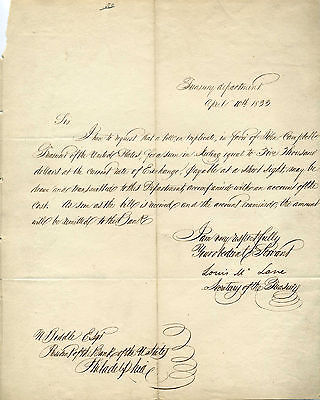 Treasury department
April 10th 1833
Sir
I have to request that a bill in triplicate, in favor of John Campbell
Treasurer of the United States for a sum in sterling equal to Five Thousand
dollars at the current rate of Exchange, payable at a short sight, may be
drawn and transmitted to this Department, accompanied with an account of the
cost. As soon as the bill is received and the account examined, the amount
will be remitted to the Bank
I am very respectfully
Your Obedient Servant
Louis McLane
Secretary of the Treasury
N. Biddle Esqr
President of the Bank of the U. States
Philadelphia